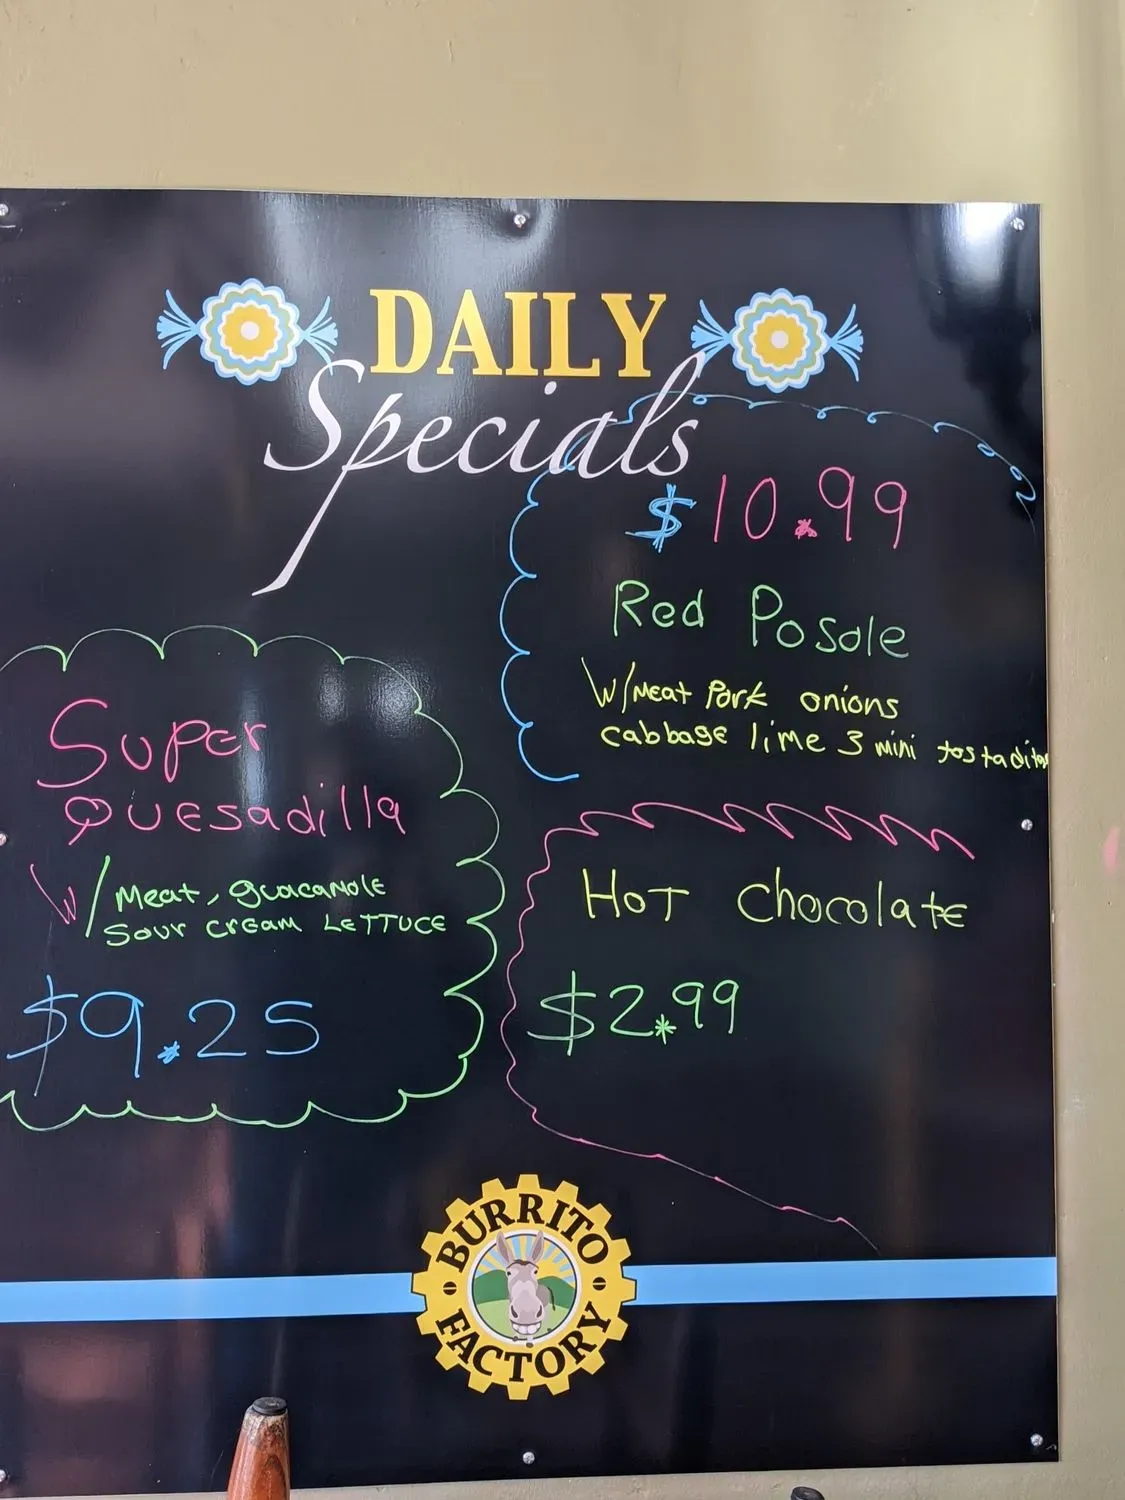 DAILY
Specials
$10.99
Red Posole
W/Meat Pork onions
cabbage lime 3 mini tostaditas
Super
Quesadilla
W/Meat, guacamole
Sour cream LETTUCE
$9.25
HoT chocolate
$2.99
BURRITO
FACTORY